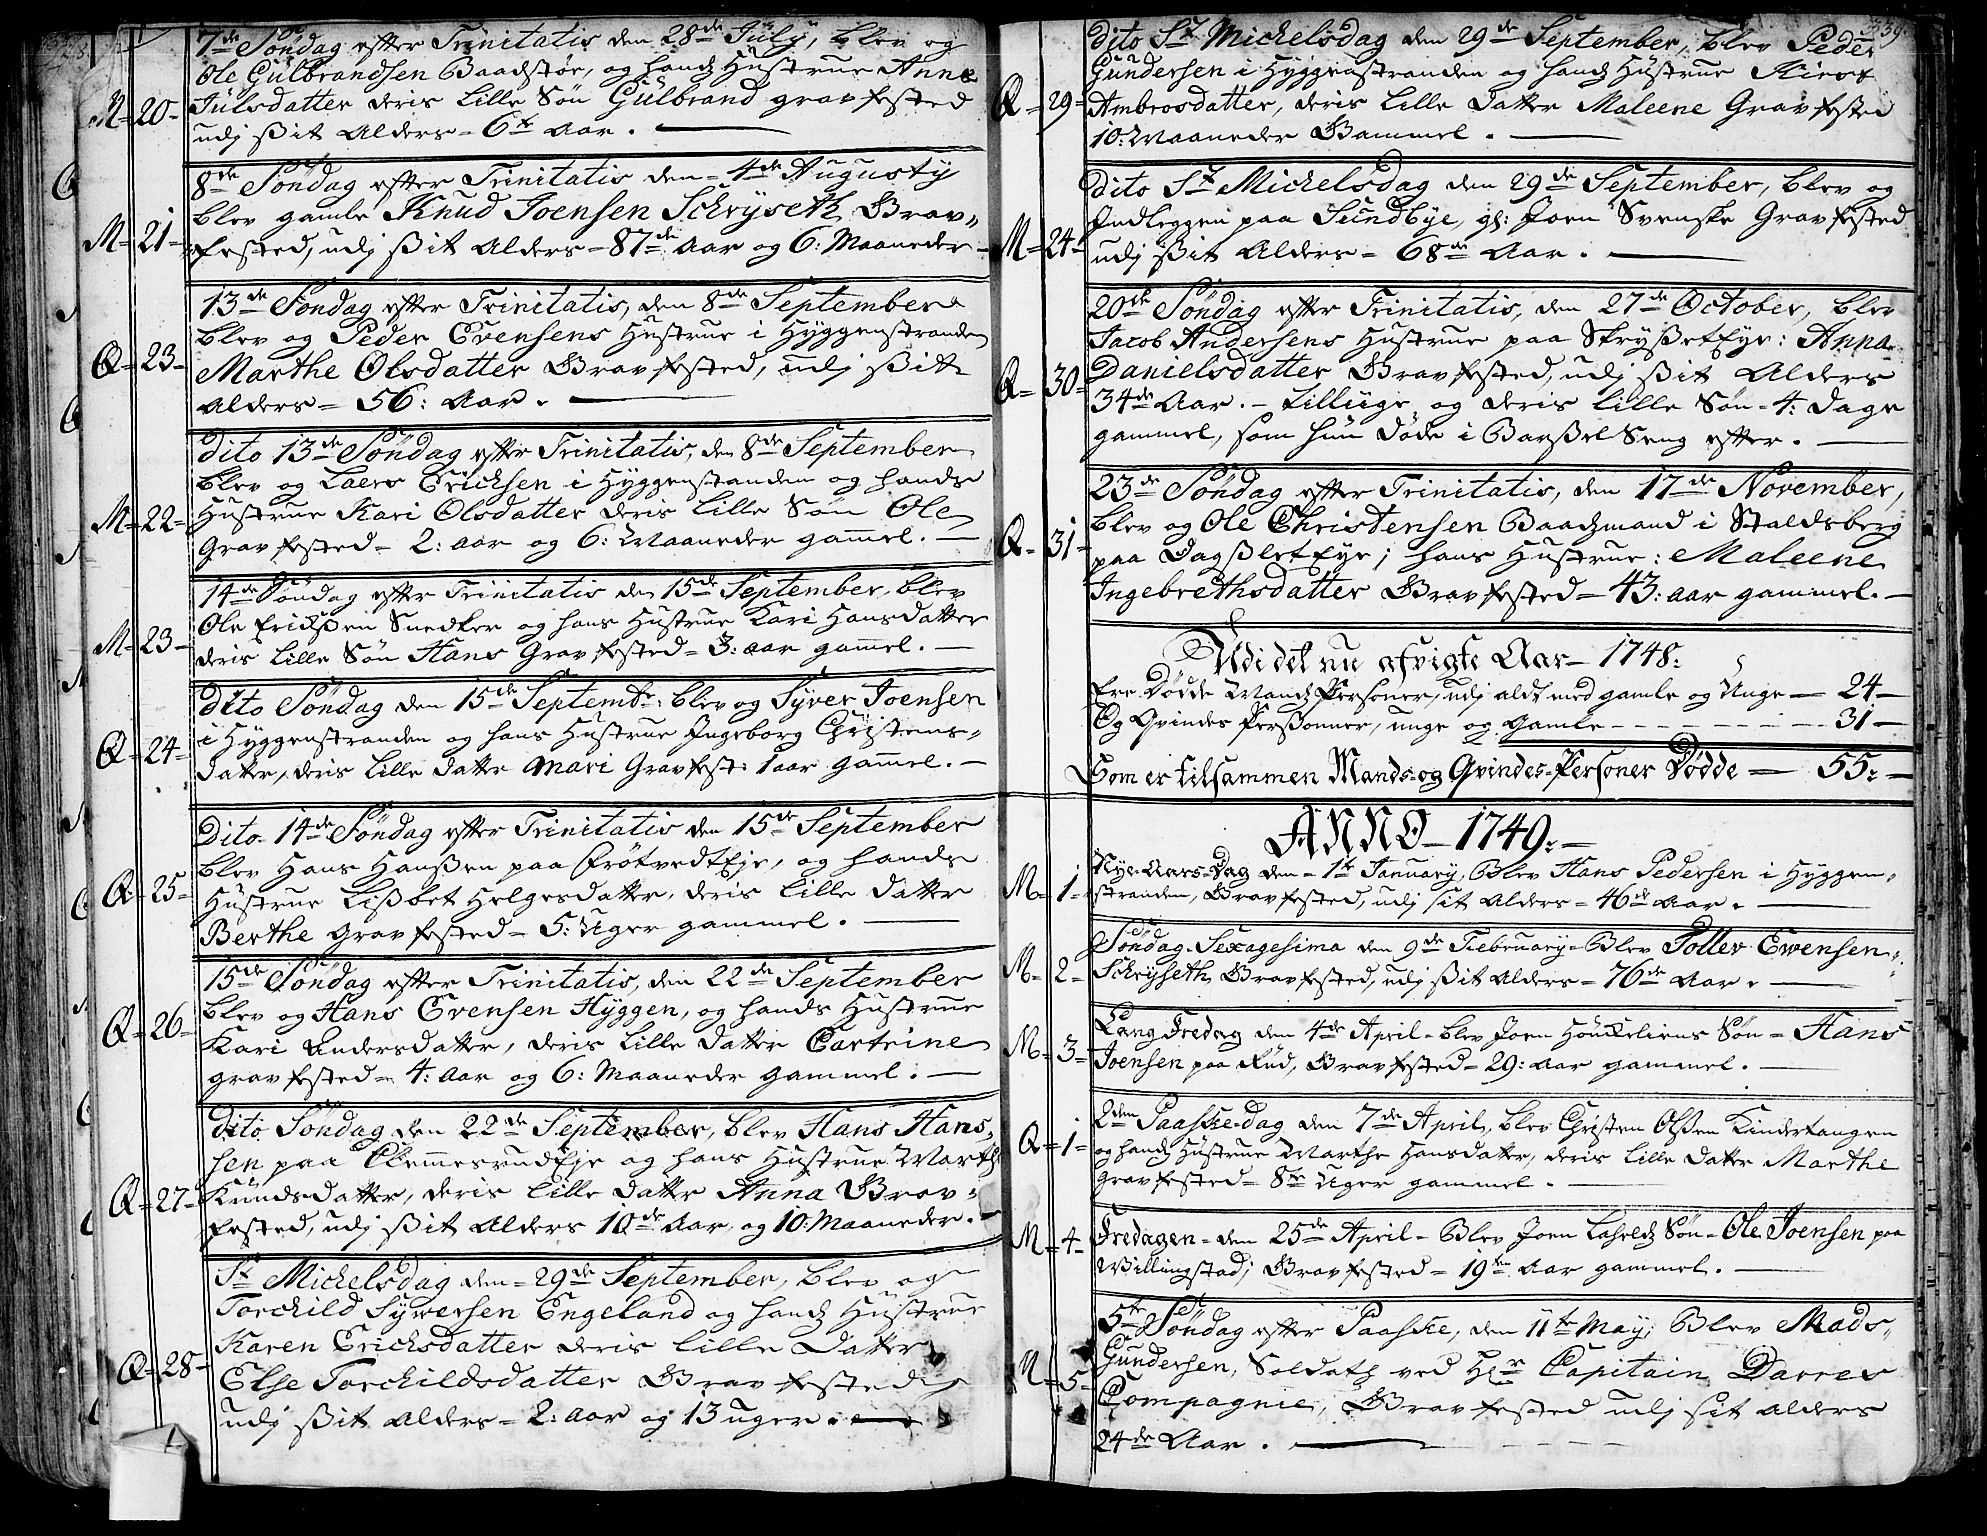 7de Søndag efter Trinitatis den 28de July, blev og
Ole Gulbrandsen Baadstøe, og hands Hustrue Anne
M = 20 - Julsdatter deris lille Søn Gulbrand gravfested
udj ßit Alders = 6te Aar.
8de Søndag efter Trinitatis den = 4de Augusty
blev gamle Knud Joensen Schryseth Grav-
M = 21 - fested, udj ßit Alders = 87de Aar og 6: Maaneder
13de Søndag efter Trinitatis, den 8de September
blev og Peder Evensens Hustrue i Hyggenstranden
Q = 23 - Marthe Olsdatter Gravfested, udj ßit
Alders = 56: Aar.
Dito 13de Søndag efter Trinitatis, den 8de September
blev og Laers Ericksen i Hyggenstanden og hands
M = 22 - Hustrue Kari Olsdatter deris lille Søn Ole
Gravfested = 2: Aar og 6: Maaneder gammel.
14de Søndag efter Trinitatis den 15de September, blev
Ole Erickßen Snedker og hans Hustrue Kari Hansdatter
M = 23 - deris lille Søn Hans Gravfested = 3: aar gammel.
Dito Søndag den 15de Septembr: blev og Syver Joensen
i Hyggenstranden og hans Hustrue Ingeborg Christens-
Q = 24 - datter, deris lille datter Mari Gravfest: 1 aar gammel.
Dito 14de Søndag efter Trinitatis den 15de September
blev Hans Hanßen paa Frøtvedteje, og hands
Q = 25 - Hustrue Lisbet Helgesdatter, deris lille datter
Berthe gravfested = 5: Uger gammel.
15de Søndag efter Trinitatis, den 22de September
blev og Hans Evensen Hyggen, og hands Hustrue
Q = 26 - Kari Andersdatter, deris lille datter Cartrine
gravfested = 4: Aar og 6: Maaneder gammel.
Dito Søndag den 22de September, blev Hans Hans-
sen paa Clemmesrudeje og hans Hustrue Marthe
Q = 27 - Knudsdatter, deris lille datter Anna Grav-
fested, udj ßit Alders 10de Aar, og 10: Maaneder.
St Michelsdag den = 29de September, blev og
Torchild Syversen Engeland og hands Hustrue
Karen Ericksdatter deris lille Datter
Q = 28 - Else Torchildsdatter Gravfested
udj ßit Alders = 2: Aar og 13 uger.
339.
Dito St Michelsdag den 29de September, blev Peder
Gundersen i Hyggenstranden og hands Hustrue Kirst
Q = 29 - Ambrosdatter, deris lille datter Maleene Gravfested
10: Maaneder Gammel.
Dito St Michelsdag den 29de September, blev og
Indleggen paa Sundbye, gl: Joen Svenske Gravfested
M = 24 - udj ßit Alders = 68de Aar.
20de Søndag efter Trinitatis, den 27de October, blev
Jacob Andersens Hustrue paa Skryßeteye: Anna
Q = 30 - Danielsdatter Gravfested, udj ßit Alders
34de Aar. - tillige og deris lille Søn = 4: Dage
gammel, som hun døde i Barßel Seng efter.
23de Søndag efter Trinitatis, den 17de November,
blev og Ole Christensen Baadzmand i Staldsberg
Q = 31 - paa Dagsleteye; hans Hustrue: Maleene
Ingebrethsdatter Gravfested = 43: aar gammel.
Udi det nu afvigte Aar - 1748:
Ere Dødde Mands Persohner, udj alt med gamle og Unge - 24 -
Og Qvindes Perßonner, unge og Gamle - - - - - 31 -
Som er tilsammen Mands- og Qvindes-Personer Dødde - 55: -
ANNO - 1749: -
Nye-Aars-Dag den = 1te January, Blev Hans Pedersen i Hyggen-
M = 1 - stranden, Gravfested, udj sit Alders = 46de Aar.
Søndag Sexagesima den 9de February = Blev Tollev Evensen
M = 2 - Schryseth Gravfested, udj ßit Alders = 76de Aar.
Lang Fredag den 4de April = blev Joen Hönckeliens Søn = Hans
M = 3 - Joensen paa Rud, Gravfested = 29: Aar gammel.
2den Paaske-dag den 7de April, blev Christen Olßen Kindertangen
Q = 1 - og hands Hustrue Marthe Hansdatter, deris lille datter Marthe
Gravfested = 8te Uger gammel.
M = 4 - Fredagen = den 25de April = Blev Joen Søn = Ole Joensen paa
Willingstad; Gravfested = 19ten Aar gammel.
5te Søndag efter Paaske, den 11te May, Blev Mads
Gundersen, Soldat ved Hr Capitain Darres
M = 5 - Compagnie, Gravfested udj sit alders
24de Aar.